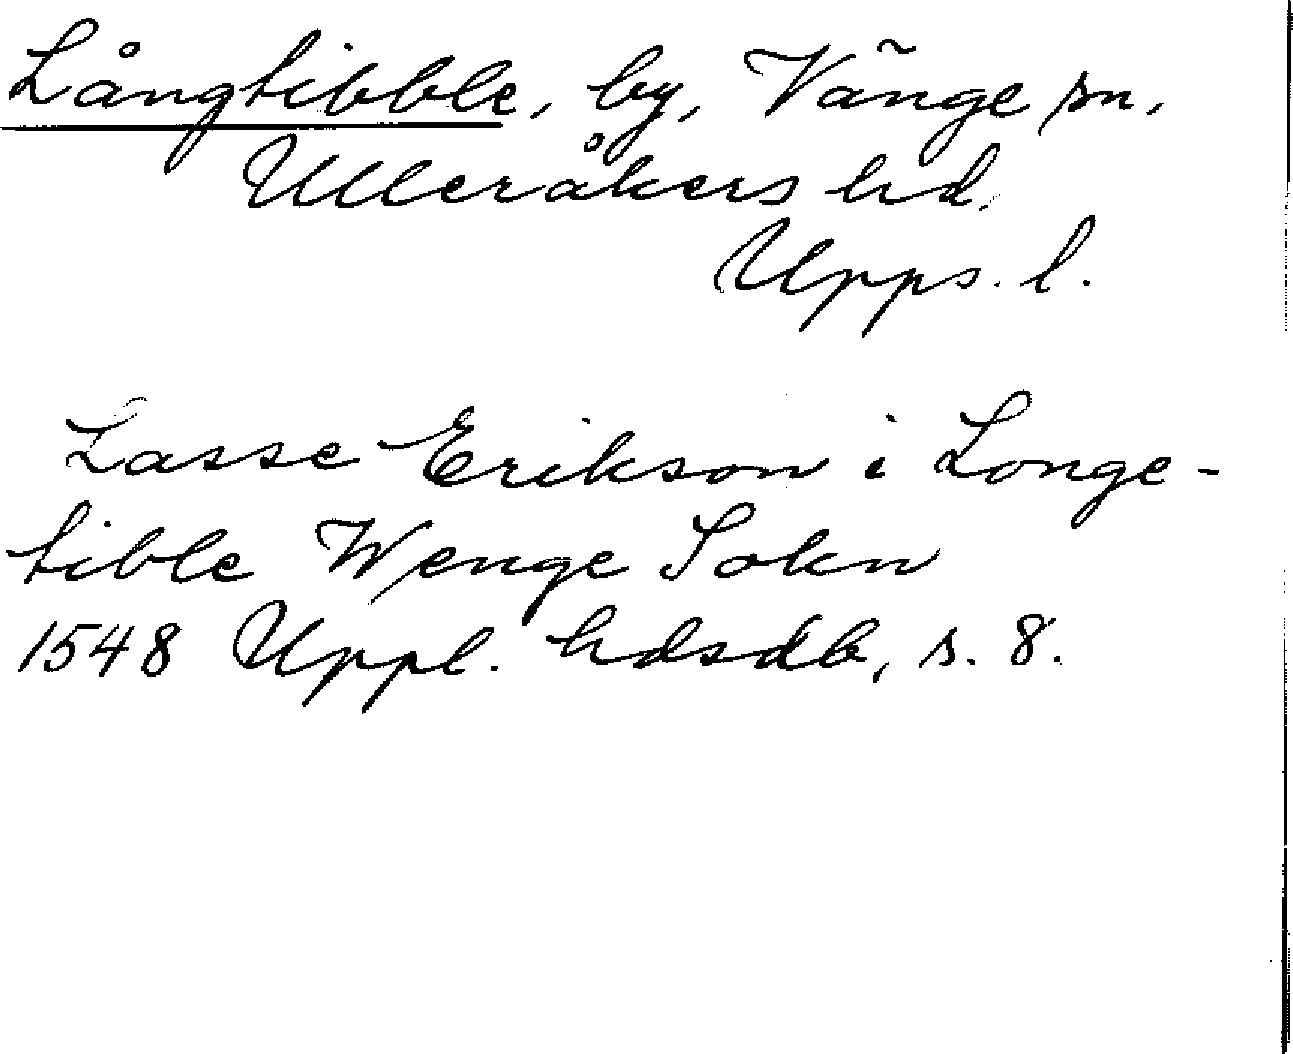 Långtibble, by, Vänge sn,
Ulleråkers hd,
Upps. l.
Lasse Erikson i Longe-
tible Wenge Sokn
1548 Uppl. hdsdb, s. 8.